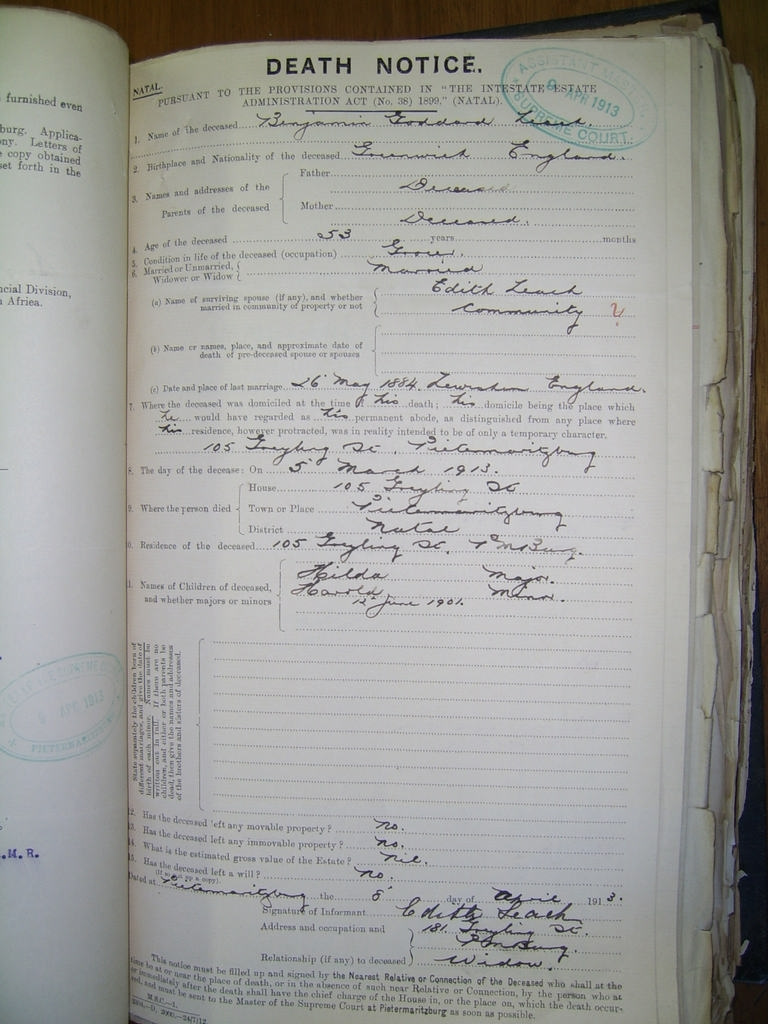 furnished even
burg. Applica-
ony. Letters of
copy obtained
set forth in the
cial Division,
Africa.
APR 1913
M. R.
DEATH NOTICE.
NATAL.
ASSISTANT MASTER
9 APR 1913
SUPREME COURT.
PURSUANT TO THE PROVISIONS CONTAINED IN "THE INTESTATE ESTATE
ADMINISTRATION ACT (No. 38) 1899," (NATAL).
1. Name of the deceased Benjamin Goddard Leach.
2. Birthplace and Nationality of the deceased Greenwich England.
3. Names and addresses of the Parents of the deceased
Father Deceased
Mother Deceased.
4. Age of the deceased 53 years months
5. Condition in life of the deceased (occupation) Grocer.
6. Married or Unmarried, Widower or Widow Married
(a) Name of surviving spouse (if any), and whether Edith Leach
married in community of property or not Community ?
(b) Name or names, place, and approximate date of
death of pre-deceased spouse or spouses
(c) Date and place of last marriage 26 May 1884. Lewisham England.
7. Where the deceased was domiciled at the time of his death; his domicile being the place which
he would have regarded as his permanent abode, as distinguished from any place where
his residence, however protracted, was in reality intended to be of only a temporary character.
105 Greyling St. Pietermaritzburg
8. The day of the decease: On 5 March 1913.
9. Where the person died
House 105 Greyling St
Town or Place Pietermaritzburg
District Natal
10. Residence of the deceased 105 Greyling St. PMBurg.
11. Names of Children of deceased, Hilda Major.
and whether majors or minors Harold Minor.
12 June 1901.
State separately the children born of
different marriages, and give the date of
birth of each minor. Names must be
written out in full. If there are no
children, and either or both parents be
dead, then give the names and addresses
of the brothers and sisters of deceased.
12. Has the deceased left any movable property? No.
13. Has the deceased left any immovable property? No.
14. What is the estimated gross value of the Estate? Nil.
15. Has the deceased left a will? No.
Dated at Pietermaritzburg the 8 day of April 1913.
Signature of Informant Edith Leach
Address and occupation and 181 Greyling St.
PMBurg.
Relationship (if any) to deceased Widow.
This notice must be filled up and signed by the Nearest Relative or Connection of the Deceased who shall at the
time be at or near the place of death, or in the absence of such near Relative or Connection, by the person who at
or immediately after the death shall have the chief charge of the House in, or the place on, which the death occur-
red, and must be sent to the Master of the Supreme Court at Pietermaritzburg as soon as possible.
M.S.C.—1.